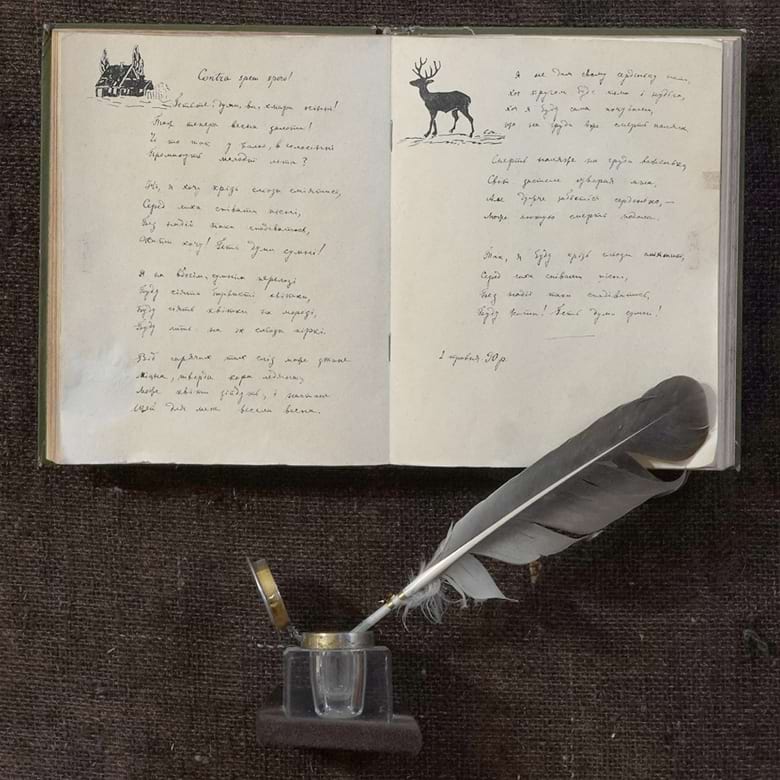 Contra spem spero!
Гетьте, думи, ви, хмари осінні!
Тож тепера весна золота!
Чи то так у жалю, в голосінні
Проминуть молодії літа?
Ні, я хочу крізь сльози сміятись,
Серед лиха співати пісні,
Без надії таки сподіватись,
Жити хочу! Геть думи сумні!
Я на вбогім, сумнім перелозі
Буду сіять барвисті квітки,
Буду сіять квітки на морозі,
Буду лить на їх сльози гіркі.
Від гарячих тих сліз може
міцна, тверда кора
Може квіти зійдуть, і настане
Щей для мене весела весна.
Я не дам свому серденьку
Хоч кругом буде тьма і нудьга,
Хоч я буду сама почувати,
Що на груди вже смерть наляга.
Смерть наляже на груди важенько,
Світ застеле суворая мла,
Але дужче заб'ється серденько, —
Може лютую смерть подола.
Так, я буду крізь сльози сміятись,
Серед лиха співати пісні,
Без надії таки сподіватись,
Буду жити! Геть думи сумні!
2 травня 90 р.